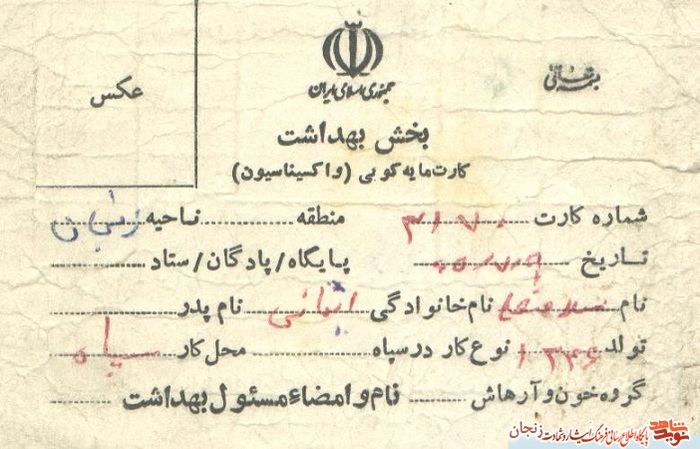 بسمه تعالی
جمهوری اسلامی ایران
عکس
بخش بهداشت
کارت مایه کوبی (واکسیناسیون)
شماره کارت ۳۱۷۰ منطقه ناحیه زنجان
تاریخ پایگاه/پادگان/ستاد
نام غلامرضا نام خانوادگی ایمانی نام پدر
تولد ۱۳۴۶ نوع کار در سپاه محل کار سپاه
گروه خون و آرهاش نام و امضاء مسئول بهداشت
نوید شاهد پایگاه اطلاع رسانی فرهنگ ایثار و شهادت زنجان